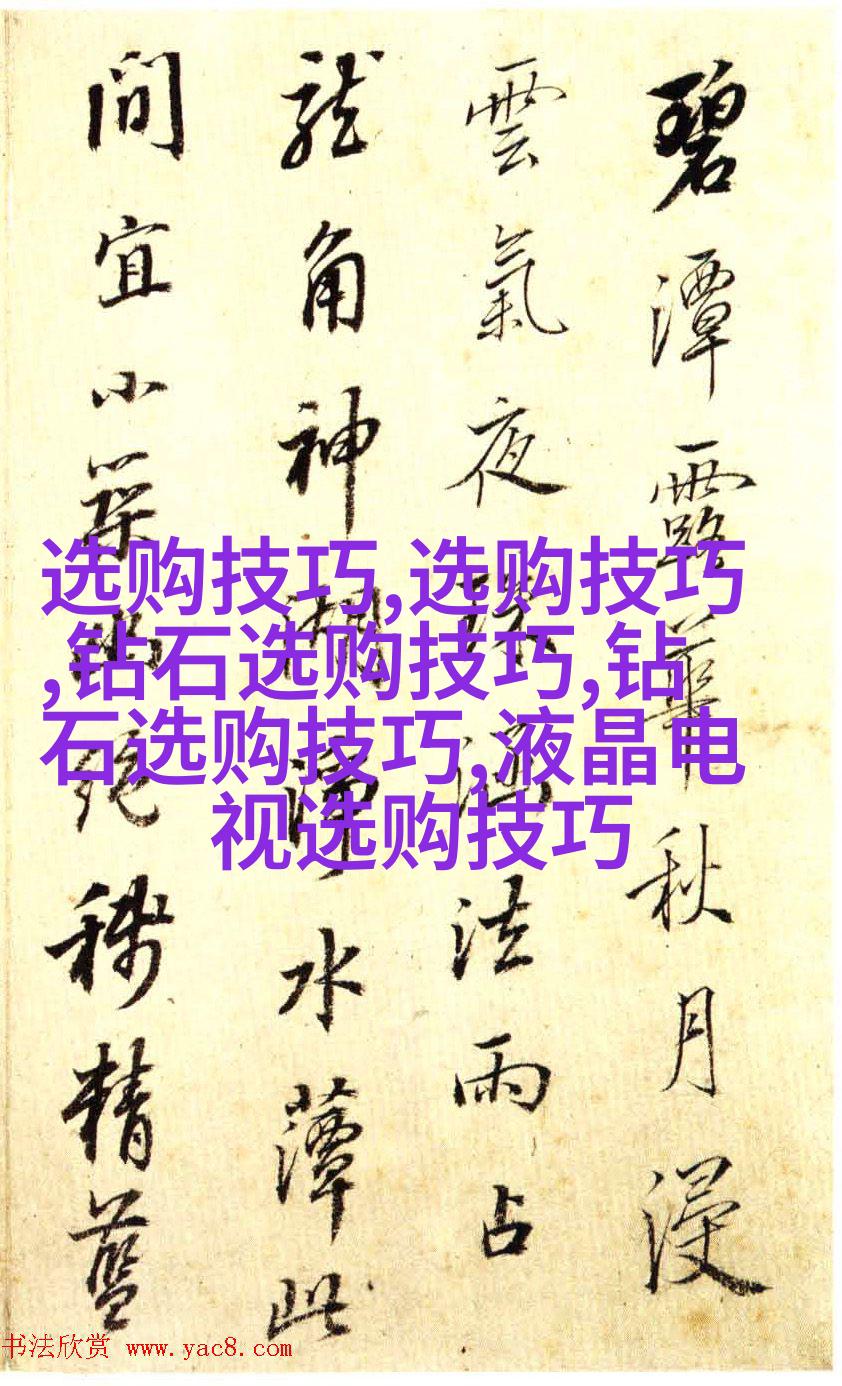 碧潭露華秋月浸
雲氣夜法雨占
龍角神湖淨水藫此
間宜小築幽絕稱精藍
选购技巧,选购技巧
,钻石选购技巧,钻
石选购技巧,液晶电
视选购技巧
书法欣赏 www.yac8.com